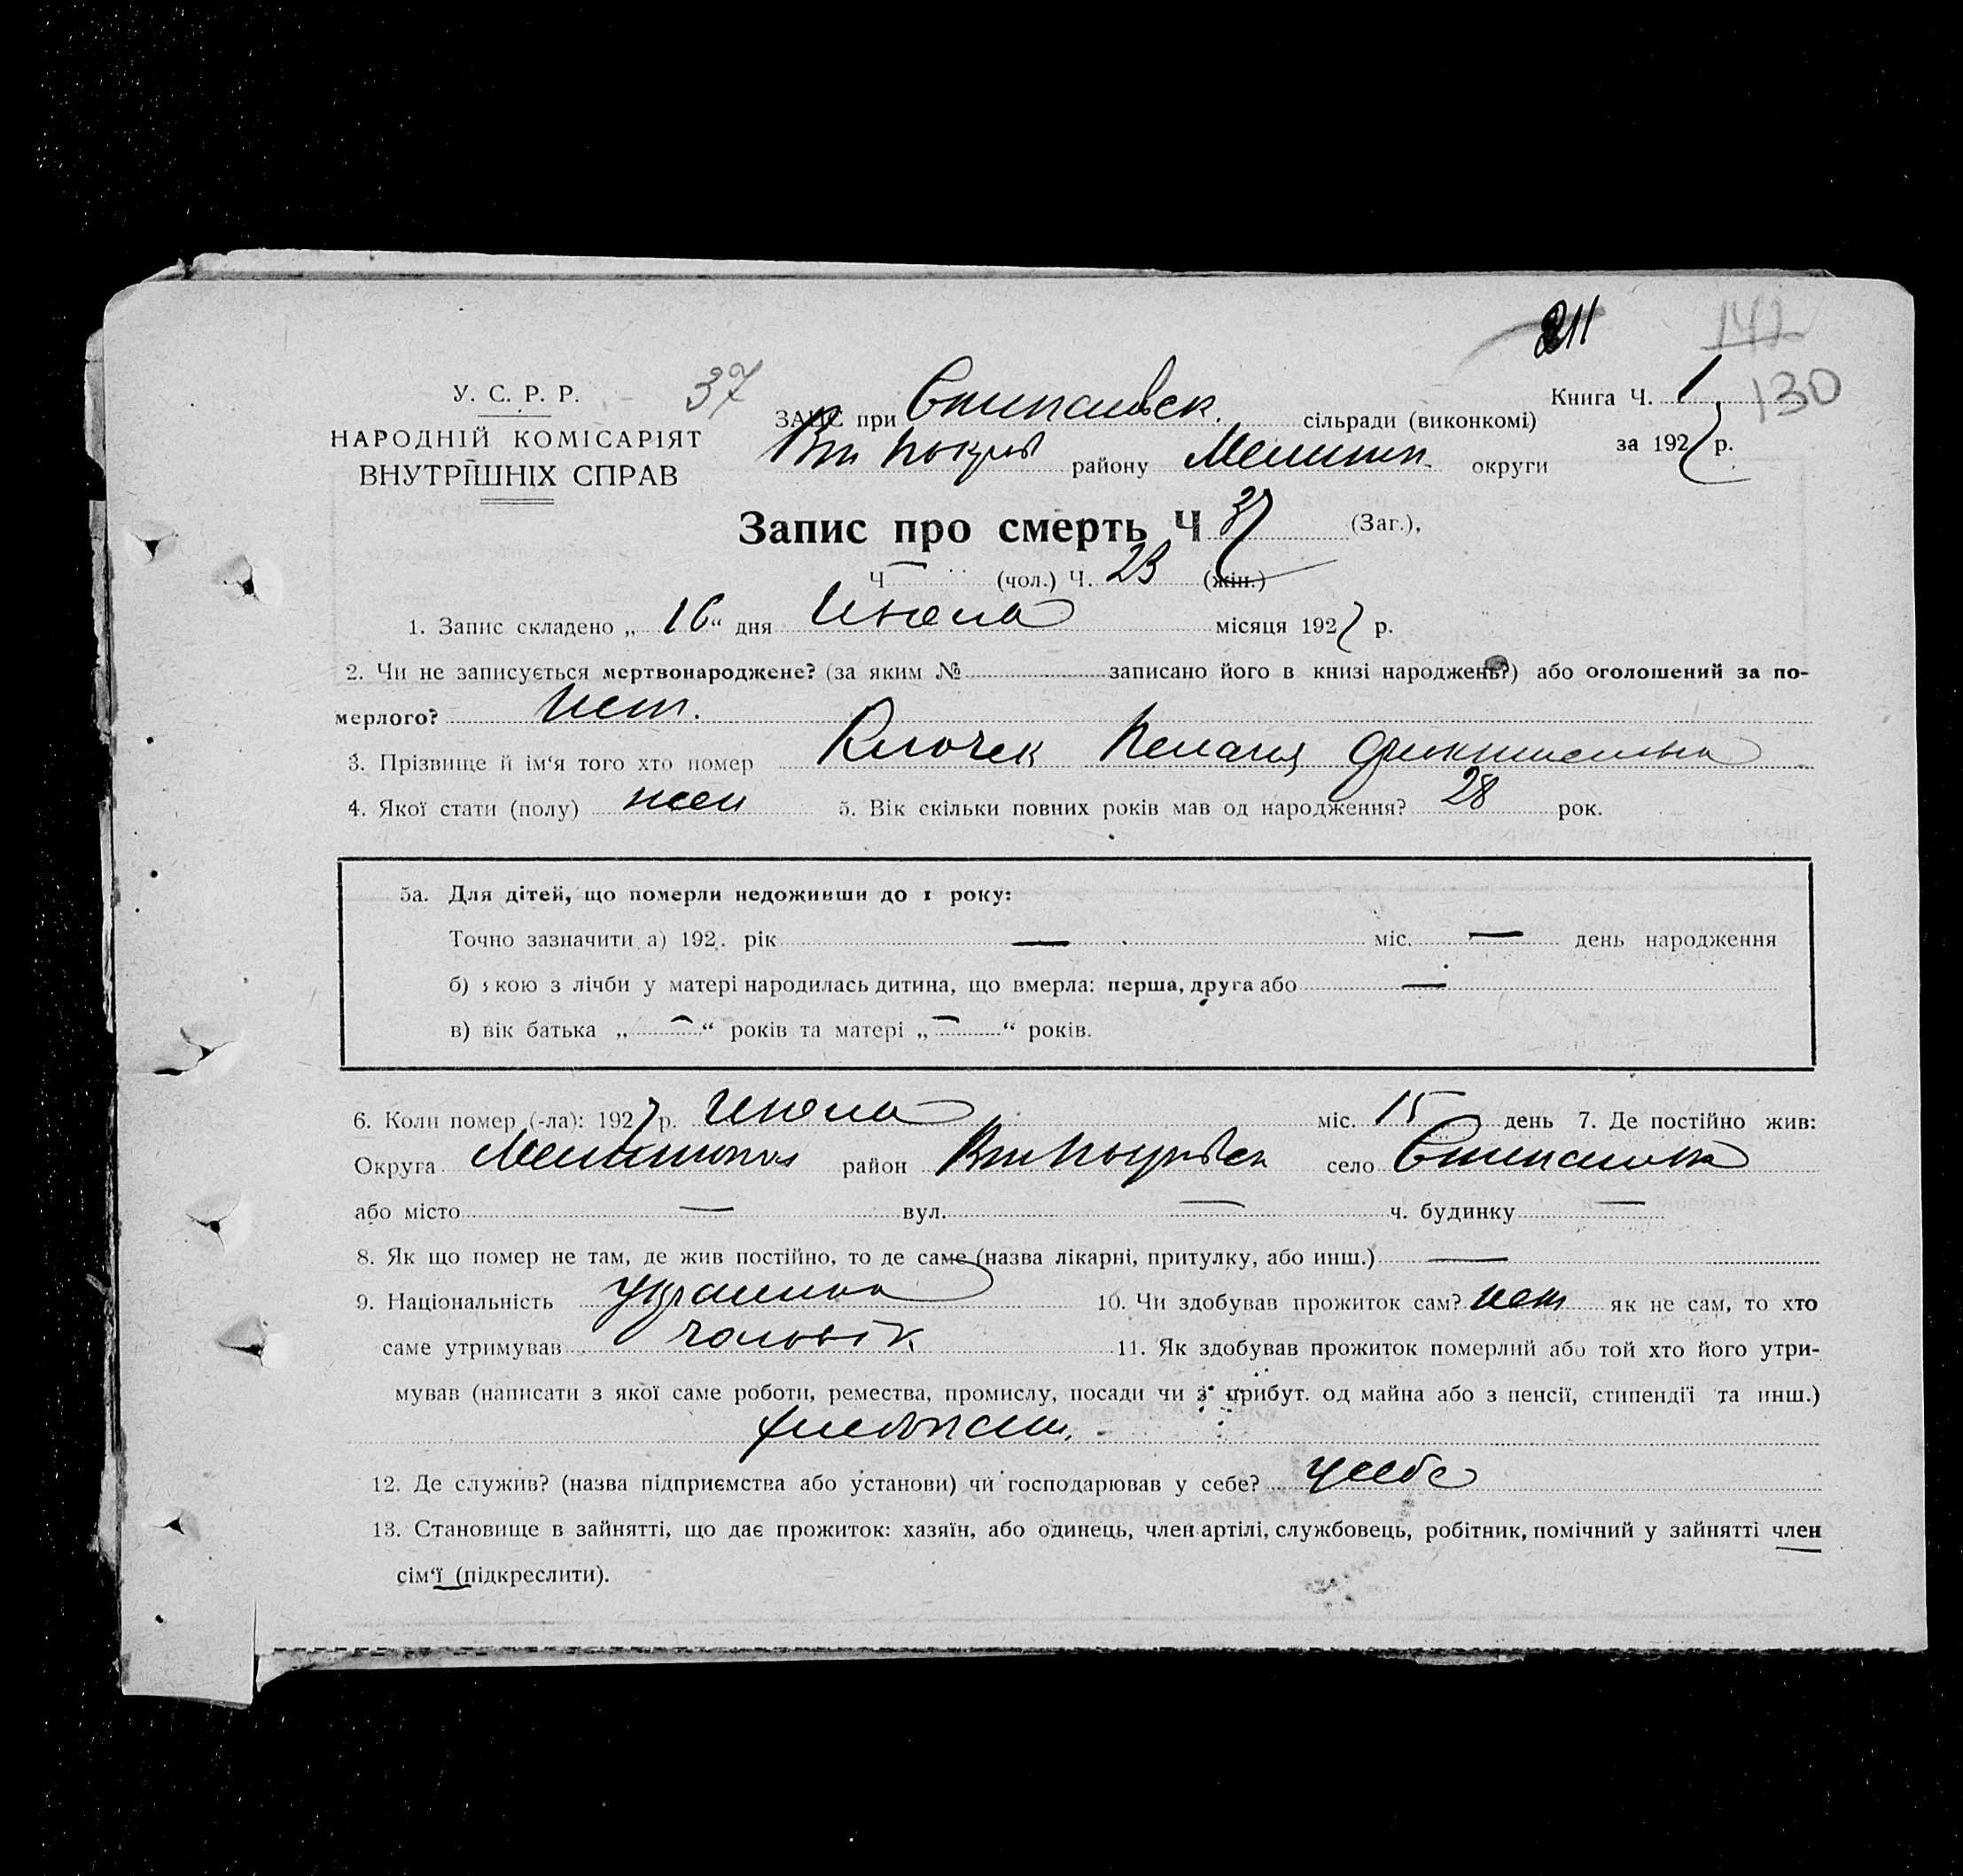 211
142
130
У. С. Р. Р.
37
ЗАГС при Степановск. сільради (виконкомі)
Книга Ч. 1
НАРОДНІЙ КОМІСАРІЯТ
ВНУТРІШНІХ СПРАВ
району Мелитоп. округи
за 1927 р.
Запис про смерть Ч 37 (Заг.),
Ч — (чол.) Ч. 23 (жін.)
1. Запис складено „ 16 “ дня Июля місяця 1927 р.
2. Чи не записується мертвонароджене? (за яким № записано його в книзі народжень?) або оголошений за по-
мерлого? Нет.
3. Прізвище й ім‘я того хто помер Клочек Пелагия
4. Якої стати (полу) жен 5. Вік скільки повних років мав од народження? 28 рок.
5а. Для дітей, що померли недоживши до 1 року:
Точно зазначити а) 192 . рік — міс. — день народження
б) якою з лічби у матері народилась дитина, що вмерла: перша, друга або —
в) вік батька „ — “ років та матері „ — “ років.
6. Коли помер (-ла): 1927 р. Июля міс. 15 день 7. Де постійно жив:
Округа район село Степановка
або місто — вул. — ч. будинку —
8. Як що помер не там, де жив постійно, то де саме (назва лікарні, притулку, або инш.) —
9. Національність Украинка 10. Чи здобував прожиток сам? нет як не сам, то хто
саме утримував чоловік 11. Як здобував прожиток померлий або той хто його утри-
мував (написати з якої саме роботи, ремества, промислу, посади чи з прибут. од майна або з пенсії, стипендії та инш.)
хлебопаш.
12. Де служив? (назва підприємства або установи) чи господарював у себе? у себе
13. Становище в зайнятті, що дає прожиток: хазяїн, або одинець, член артілі, службовець, робітник, помічний у зайнятті член
сім‘ї (підкреслити).